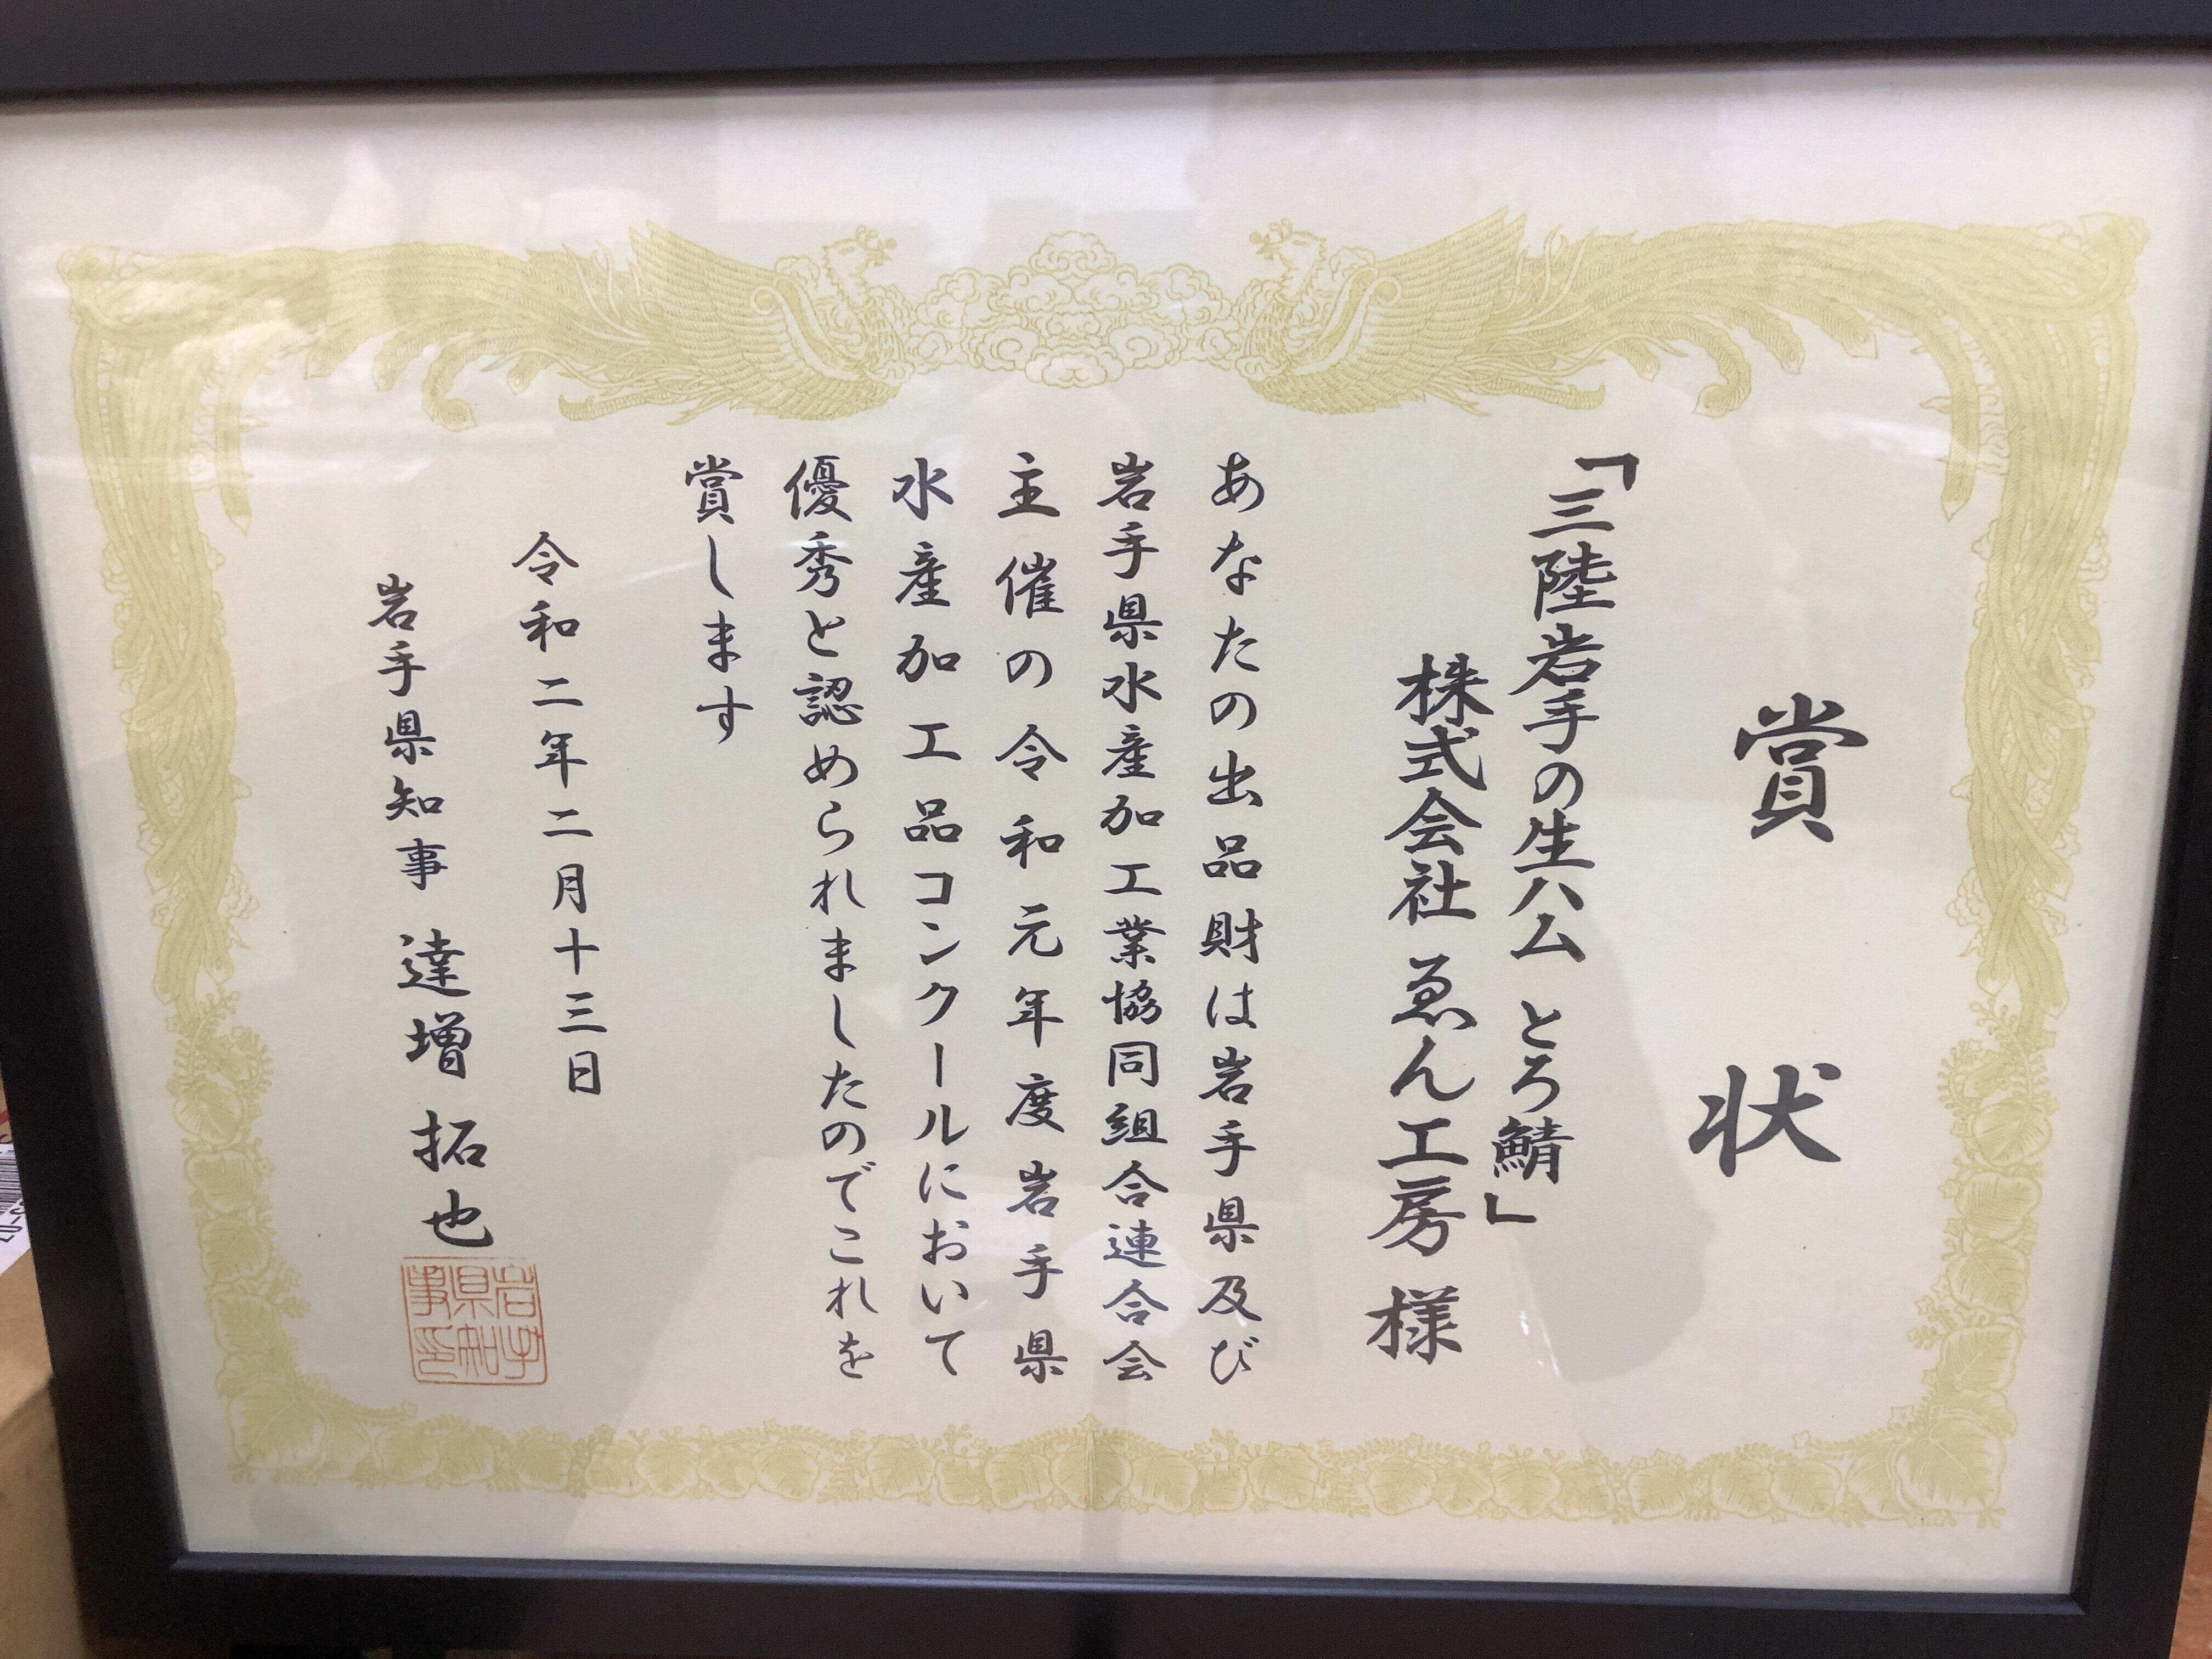 賞状
「三陸岩手の生ハム とろ鯖」
株式会社 ゑん工房 様
あなたの出品財は岩手県及び
岩手県水産加工業協同組合連合会
主催の令和元年度岩手県
水産加工品コンクールにおいて
優秀と認められましたのでこれを
賞します
令和二年二月十三日
岩手県知事 達増拓也
岩手
県知
事印